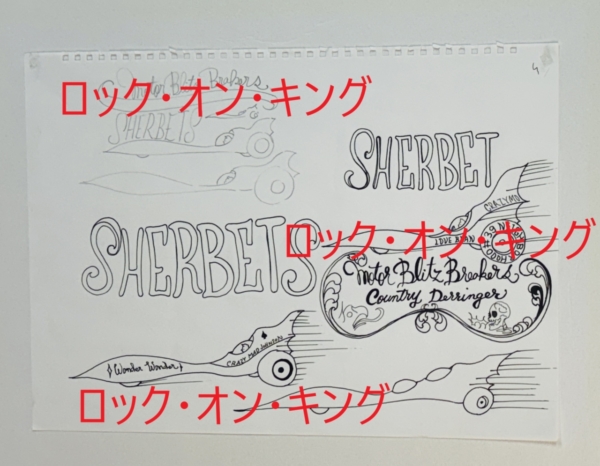 4
Motor Blitz Breakers
ロック・オン・キング
SHERBETS
SHERBET
CRAZY
ロック・オン・キング
SHERBETS
Motor Blitz Breakers
Country Derringer
Wonder Wonder
CRAZY MAD
ロック・オン・キング